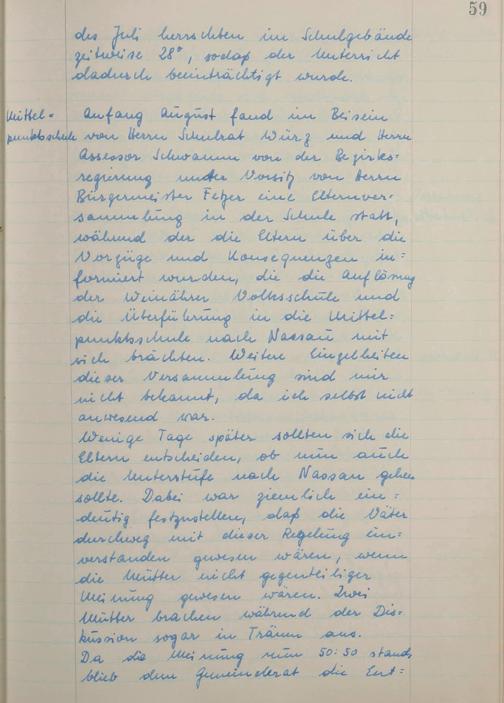 59
des Juli herrschten im Schulgebände
zeitweise 28°, sodaß der Unterricht
dadurch beeinträchtigt wurde.
Mittel=
punktschule
Anfang August fand im Beisein
von Herrn Schulrat Würz und Herrn
Assessor Schwamm von der Bezirks=
regierung unter Vorsitz von Herrn
Bürgermeister Fetzer eine Elternver=
sammlung in der Schule statt,
während der die Eltern über die
Vorzüge und Konsequenzen in=
formiert wurden, die die Auflösung
der Weinährer Volksschule und
die Überführung in die Mittel=
punktsschule nach Nassau mit
sich brächten. Weitere Einzelheiten
dieser Versammlung sind mir
nicht bekannt, da ich selbst nicht
anwesend war.
Wenige Tage später sollten sich die
Eltern entscheiden, ob nun auch
die Unterstufe nach Nassau gehen
sollte. Dabei war ziemlich ein=
deutig festzustellen, daß die Väter
durchweg mit dieser Regelung ein=
verstanden gewesen wären, wenn
die Mütter nicht gegenteiliger
Meinung gewesen wären. Zwei
Mütter brachen während der Dis=
kussion sogar in Tränen aus.
Da die Meinung nun 50:50 stand,
blieb dem Gemeinderat die Ent=